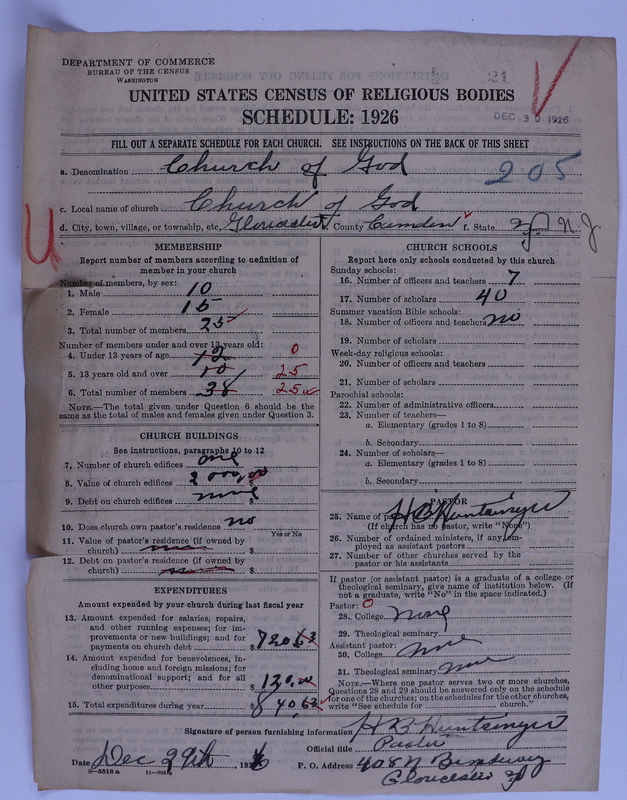 DEPARTMENT OF COMMERCE
BUREAU OF THE CENSUS
WASHINGTON
21
UNITED STATES CENSUS OF RELIGIOUS BODIES
SCHEDULE: 1926
DEC 30 1926
FILL OUT A SEPARATE SCHEDULE FOR EACH CHURCH. SEE INSTRUCTIONS ON THE BACK OF THIS SHEET
a. Denomination Church of God
205
c. Local name of church Church of God
d. City, town, village, or township, etc. Gloucester County Camden f. State NJ
MEMBERSHIP
Report number of members according to definition of
member in your church
Number of members, by sex:
1. Male 10
2. Female 15
3. Total number of members 25
Number of members under and over 13 years old:
4. Under 13 years of age 12 0
5. 13 years old and over 10 25
6. Total number of members 38 25
NOTE.—The total given under Question 6 should be the
same as the total of males and females given under Question 3.
CHURCH BUILDINGS
See instructions, paragraphs 10 to 12
7. Number of church edifices one
8. Value of church edifices $ 2000,00
9. Debt on church edifices $ none
10. Does church own pastor's residence? no
Yes or No
11. Value of pastor's residence (if owned by
church) $
12. Debt on pastor's residence (if owned by
church) $
EXPENDITURES
Amount expended by your church during last fiscal year
13. Amount expended for salaries, repairs,
and other running expenses; for im-
provements or new buildings; and for
payments on church debt $ 720.63
14. Amount expended for benevolences, in-
cluding home and foreign missions; for
denominational support; and for all
other purposes $ 120.00
15. Total expenditures during year $ 840.63
CHURCH SCHOOLS
Report here only schools conducted by this church
Sunday schools:
16. Number of officers and teachers 7
17. Number of scholars 40
Summer vacation Bible schools:
18. Number of officers and teachers no
19. Number of scholars
Week-day religious schools:
20. Number of officers and teachers
21. Number of scholars
Parochial schools:
22. Number of administrative officers
23. Number of teachers—
a. Elementary (grades 1 to 8)
b. Secondary
24. Number of scholars—
a. Elementary (grades 1 to 8)
b. Secondary
PASTOR
25. Name of pastor H B Huntsinger
(If church has no pastor, write "None")
26. Number of ordained ministers, if any, em-
ployed as assistant pastors
27. Number of other churches served by the
pastor or his assistants
If pastor (or assistant pastor) is a graduate of a college or
theological seminary, give name of institution below. (If
not a graduate, write "No" in the space indicated.)
Pastor: 0
28. College none
29. Theological seminary
Assistant pastor:
30. College none
31. Theological seminary none
NOTE.—Where one pastor serves two or more churches,
Questions 28 and 29 should be answered only on the schedule
for one of the churches; on the schedules for the other churches,
write "See schedule for church."
Signature of person furnishing information H B Huntsinger
Official title Pastor
Date Dec 29th, 1926 P. O. Address 408 N Broadway
8-5518 a Gloucester NJ